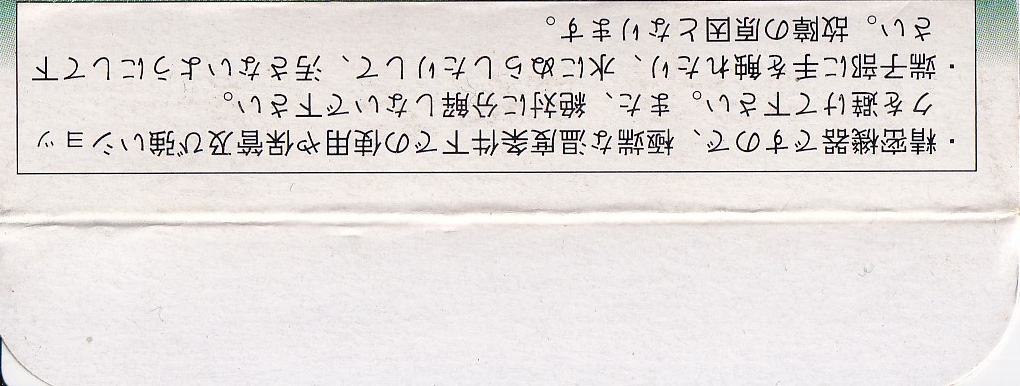 ・精密機器ですので、極端な温度条件下での使用や保管及び強いショッ
クを避けて下さい。また、絶対に分解しないで下さい。
・端子部に手を触れたり、水にぬらしたりして、汚さないようにして下
さい。故障の原因となります。